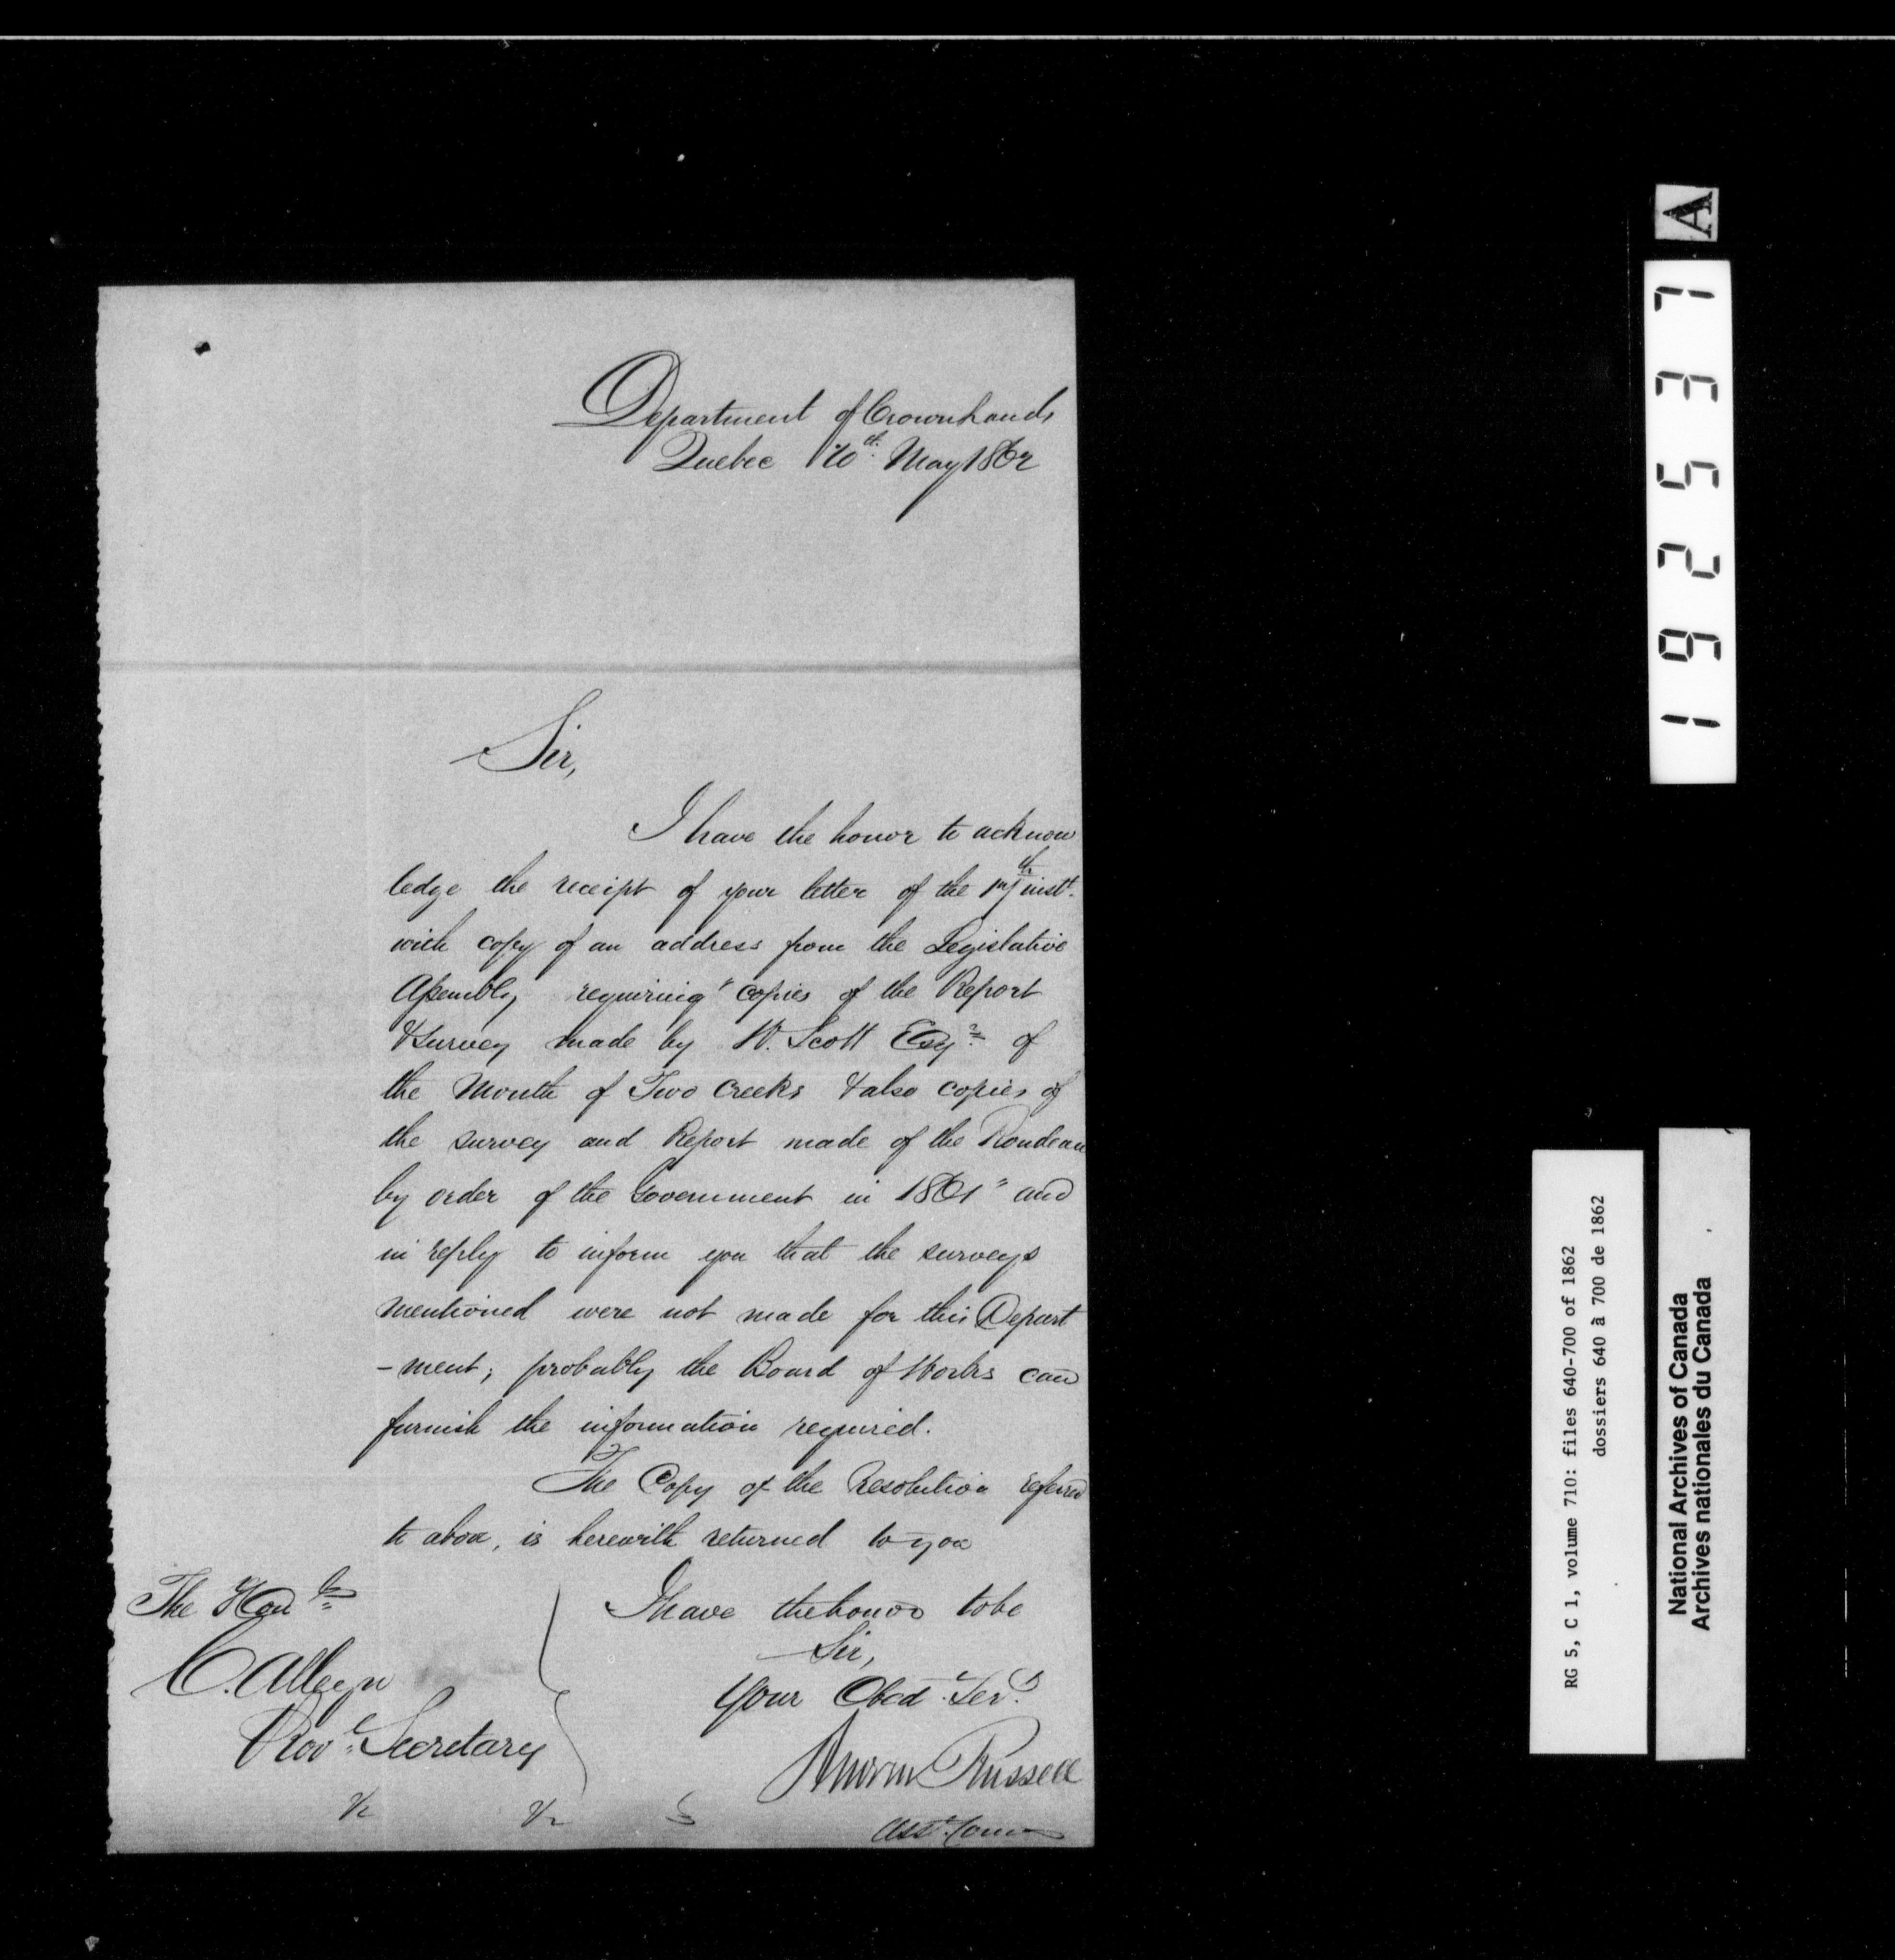 Department of Crown Lands
Quebec 20th. May 1862
Sir,
I have the honor to acknow
ledge the receipt of your letter of the 19th inst.
with copy of an address from the Legislative
Assembly requiring "copies of the Report
& survey made by W. Scott Esqr. of
the Mouth of Two Creeks & also copies of
the survey and Report made of the Rondeau
by order of the Government in 1861" and
in reply to inform you that the surveys
mentioned were not made for this Depart
-ment; probably the Board of Works can
furnish the information required.
The Copy of the Resolution referred
to above, is herewith returned to you
I have the honor to be
Sir,
Your Obed. Servt.
Andrew Russell
Asst. Comr
The Honble
C. Alleyn
Provl. Secretary
A
192537
RG 5, C 1, volume 710: files 640-700 of 1862
dossiers 640 à 700 de 1862
National Archives of Canada
Archives nationales du Canada